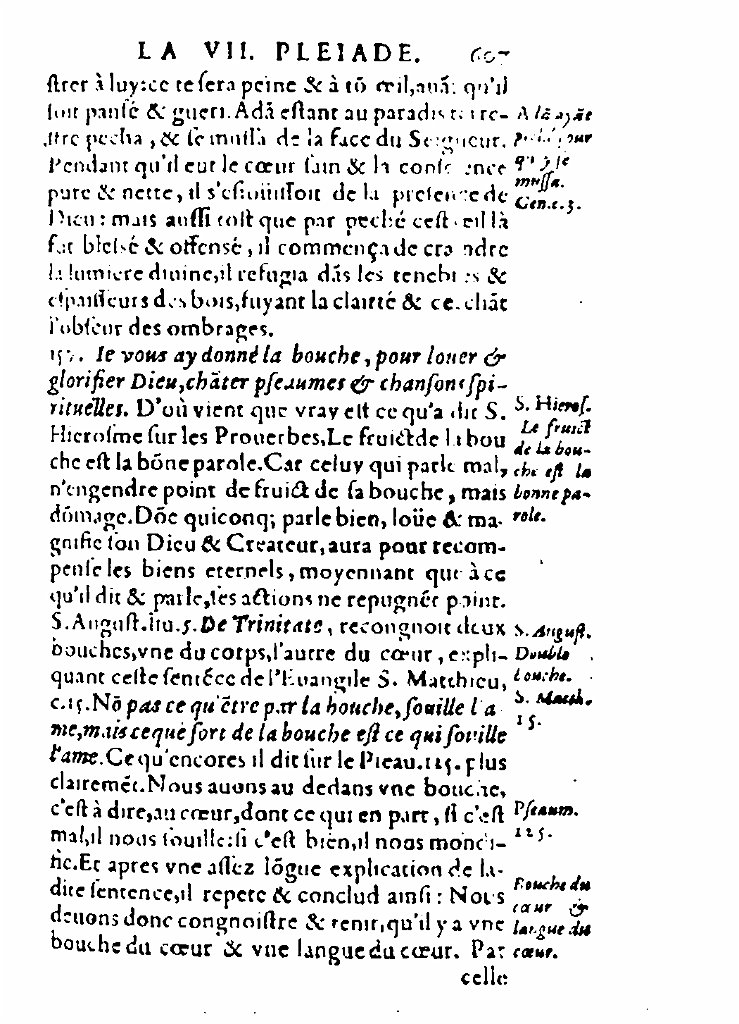 LA VII. PLEIADE. 607
ſtrer à luy: ce te ſera peine & à tō œil, auāt qu'il
ſoit panſé & gueri. Adā eſtant au paradis terre-
ſtre pecha, & ſe muſſa de la face du Seigneur.
Pendant qu'il eut le cœur ſain & la conſcience
pure & nette, il s'eſiouiſſoit de la preſence de
Dieu: mais auſſi toſt que par peché ceſt œil là
fut bleſsé & offensé, il commença de craindre
la lumiere diuine, il refugia dās les tenebres &
eſpaiſſeurs des bois, fuyant la clairté & cerchāt
l'obſcur des ombrages.
Ie vous ay donné la bouche, pour louer &
glorifier Dieu, chāter pſeaumes & chanſons ſpi-
rituelles. D'où vient que vray eſt ce qu'a dit S.
Hieroſme ſur les Prouerbes. Le fruict de la bou
che eſt la bōne parole. Car celuy qui parle mal,
n'engendre point de fruict de ſa bouche, mais
dōmage. Dōc quiconq; parle bien, loüe & ma-
gnifie ſon Dieu & Createur, aura pour recom-
penſe les biens eternels, moyennant que à ce
qu'il dit & parle, ſes actions ne repugnēt point.
S. Auguſt. liu. 5. De Trinitate, recongnoit deux
bouches, vne du corps, l'autre du cœur, expli-
quant ceſte ſentēce de l'Euangile S. Matthieu,
c. 15. Nō pas ce qu'ētre par la bouche, ſouille l'a
me, mais ce que ſort de la bouche eſt ce qui ſouille
l'ame. Ce qu'encores il dit ſur le Pſeau. 125. plus
clairemēt. Nous auons au dedans vne bouche,
c'eſt à dire, au cœur, dont ce qui en part, ſi c'eſt
mal, il nous ſouille: ſi c'eſt bien, il nous mondi-
fie. Et apres vne aſſez lōgue explication de la-
dite ſentence, il repete & conclud ainſi: Nous
deuons donc congnoiſtre & tenir, qu'il y a vne
bouche du cœur & vne langue du cœur. Par
celle
Adā ayāt
peché pour
quoy ſe
muſſa.
Gen. c. 3.
S. Hieroſ.
Le fruict
de la bou-
che eſt la
bonne pa-
role.
S. Auguſt.
Double
bouche.
S. Matth.
15.
Pſeaum.
125.
Bouche du
cœur &
langue du
cœur.